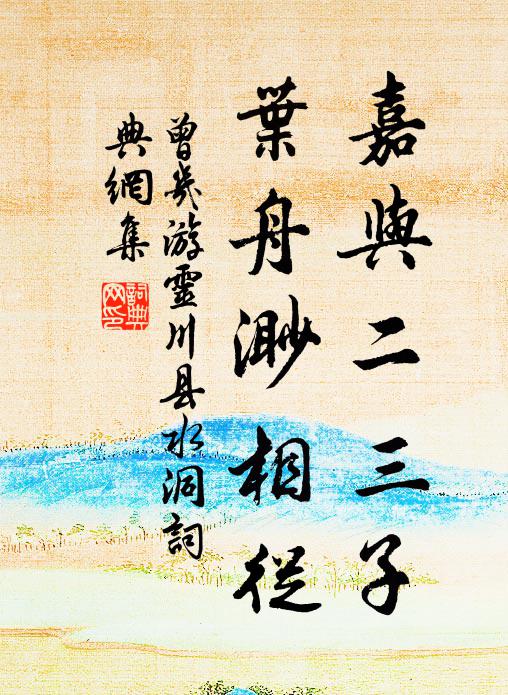 嘉與二三子
葉舟渺相從
曾幾游靈川县水洞詞
典網集
詞典
网印